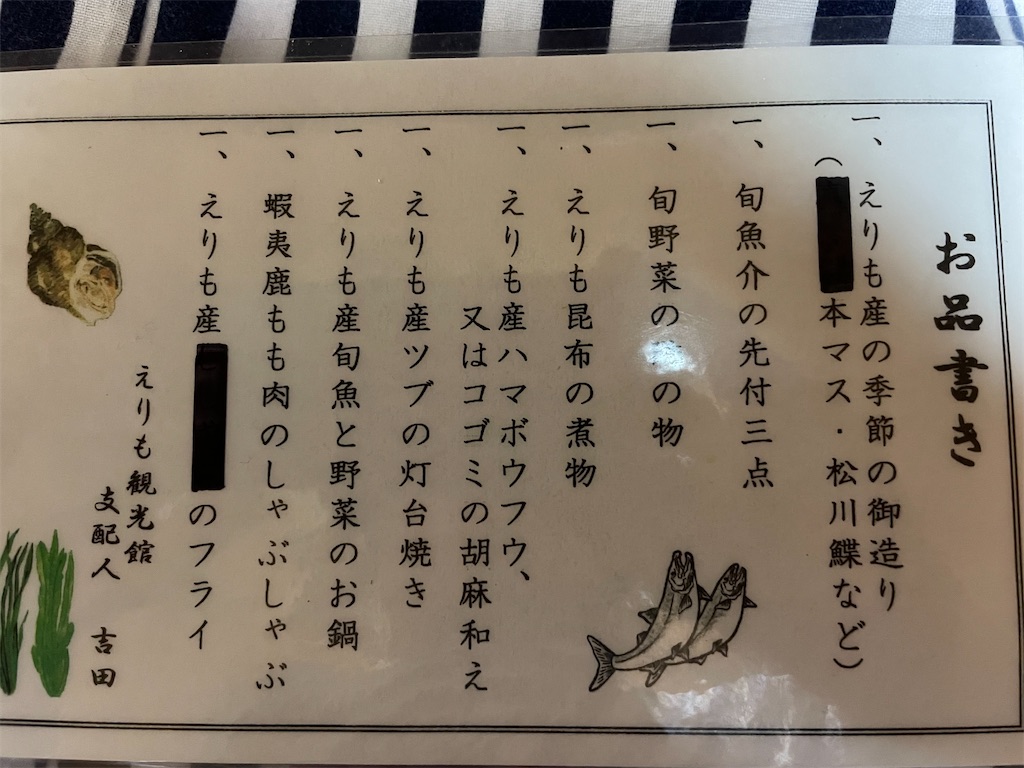 お品書き
一、えりも産の季節の御造り
（本マス・松川鰈など）
一、旬魚介の先付三点
一、旬野菜の の物
一、えりも昆布の煮物
一、えりも産ハマボウフウ、
又はコゴミの胡麻和え
一、えりも産ツブの灯台焼き
一、えりも産旬魚と野菜のお鍋
一、蝦夷鹿もも肉のしゃぶしゃぶ
一、えりも産 のフライ
えりも観光館
支配人 吉田